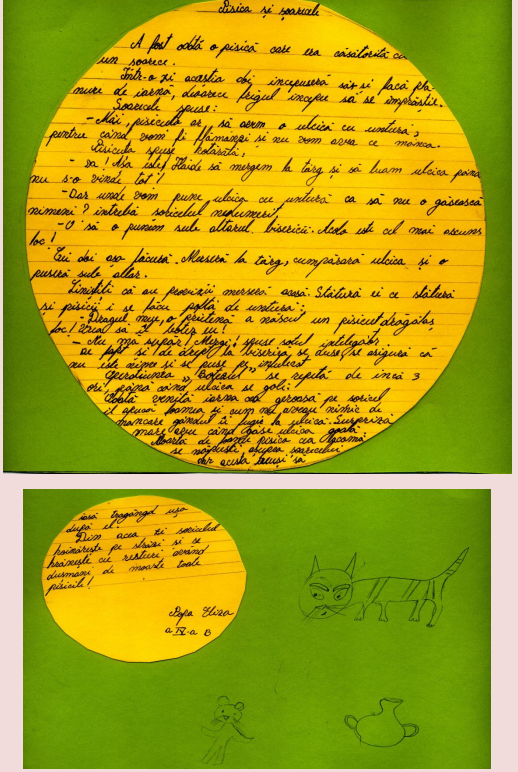 Pisica și șoarecele
A fost odată o pisică care era căsătorită cu
un șoarece.
Într-o zi aceștia doi începuseră să-și facă pla-
nuri de iarnă, deoarece frigul începu să se împrăștie.
Șoarecele spuse:
- Măi, pisicuța ar, să avem o ulcică cu untură,
pentru când vom fi flămânzi și nu vom avea ce mânca.
Pisicuța spuse hotărâtă:
- Da! Așa este! Haide să mergem la târg și să luăm ulcica până
nu s-o vinde tot!
- Dar unde vom pune ulcica cu untură ca să nu o găsească
nimeni? întrebă șoricelul nedumerit.
- O să o punem sub altarul bisericii. Acolo este cel mai ascuns
loc!
Cei doi așa făcură. Merseră la târg, cumpărară ulcica și o
puseră sub altar.
Liniștiți că au provizii merseră acasă. Stătură ei ce stătură
și pisicii i se făcu poftă de untură:
- Dragul meu, o prietenă a născut un pisicuț drăgălaș
foc! Vreau să îl botez eu!
- Nu mă supăr! Mergi! spuse soțul înțelegător.
se duse se asigură că
nu este nimeni și se puse pe
"Botezul" se repetă de încă 3
ori, până când ulcica se goli.
Odată venită iarna cea geroasă pe șoricel
îl apucă foamea și cum nu aveau nimic de
mâncare gândul îi fugi la ulcică. Surpriză
mare avu când găsi ulcica goală.
Moartă de foame pisica cea lacomă
se năpusti asupra șoarecelui
dar acesta totuși să
iasă trăgând ușa
după el.
Din acea zi șoricelul
pe străzi și se
hrănește cu resturi având
dușmani de moarte toate
pisicile!
Popa Eliza
a IV-a B